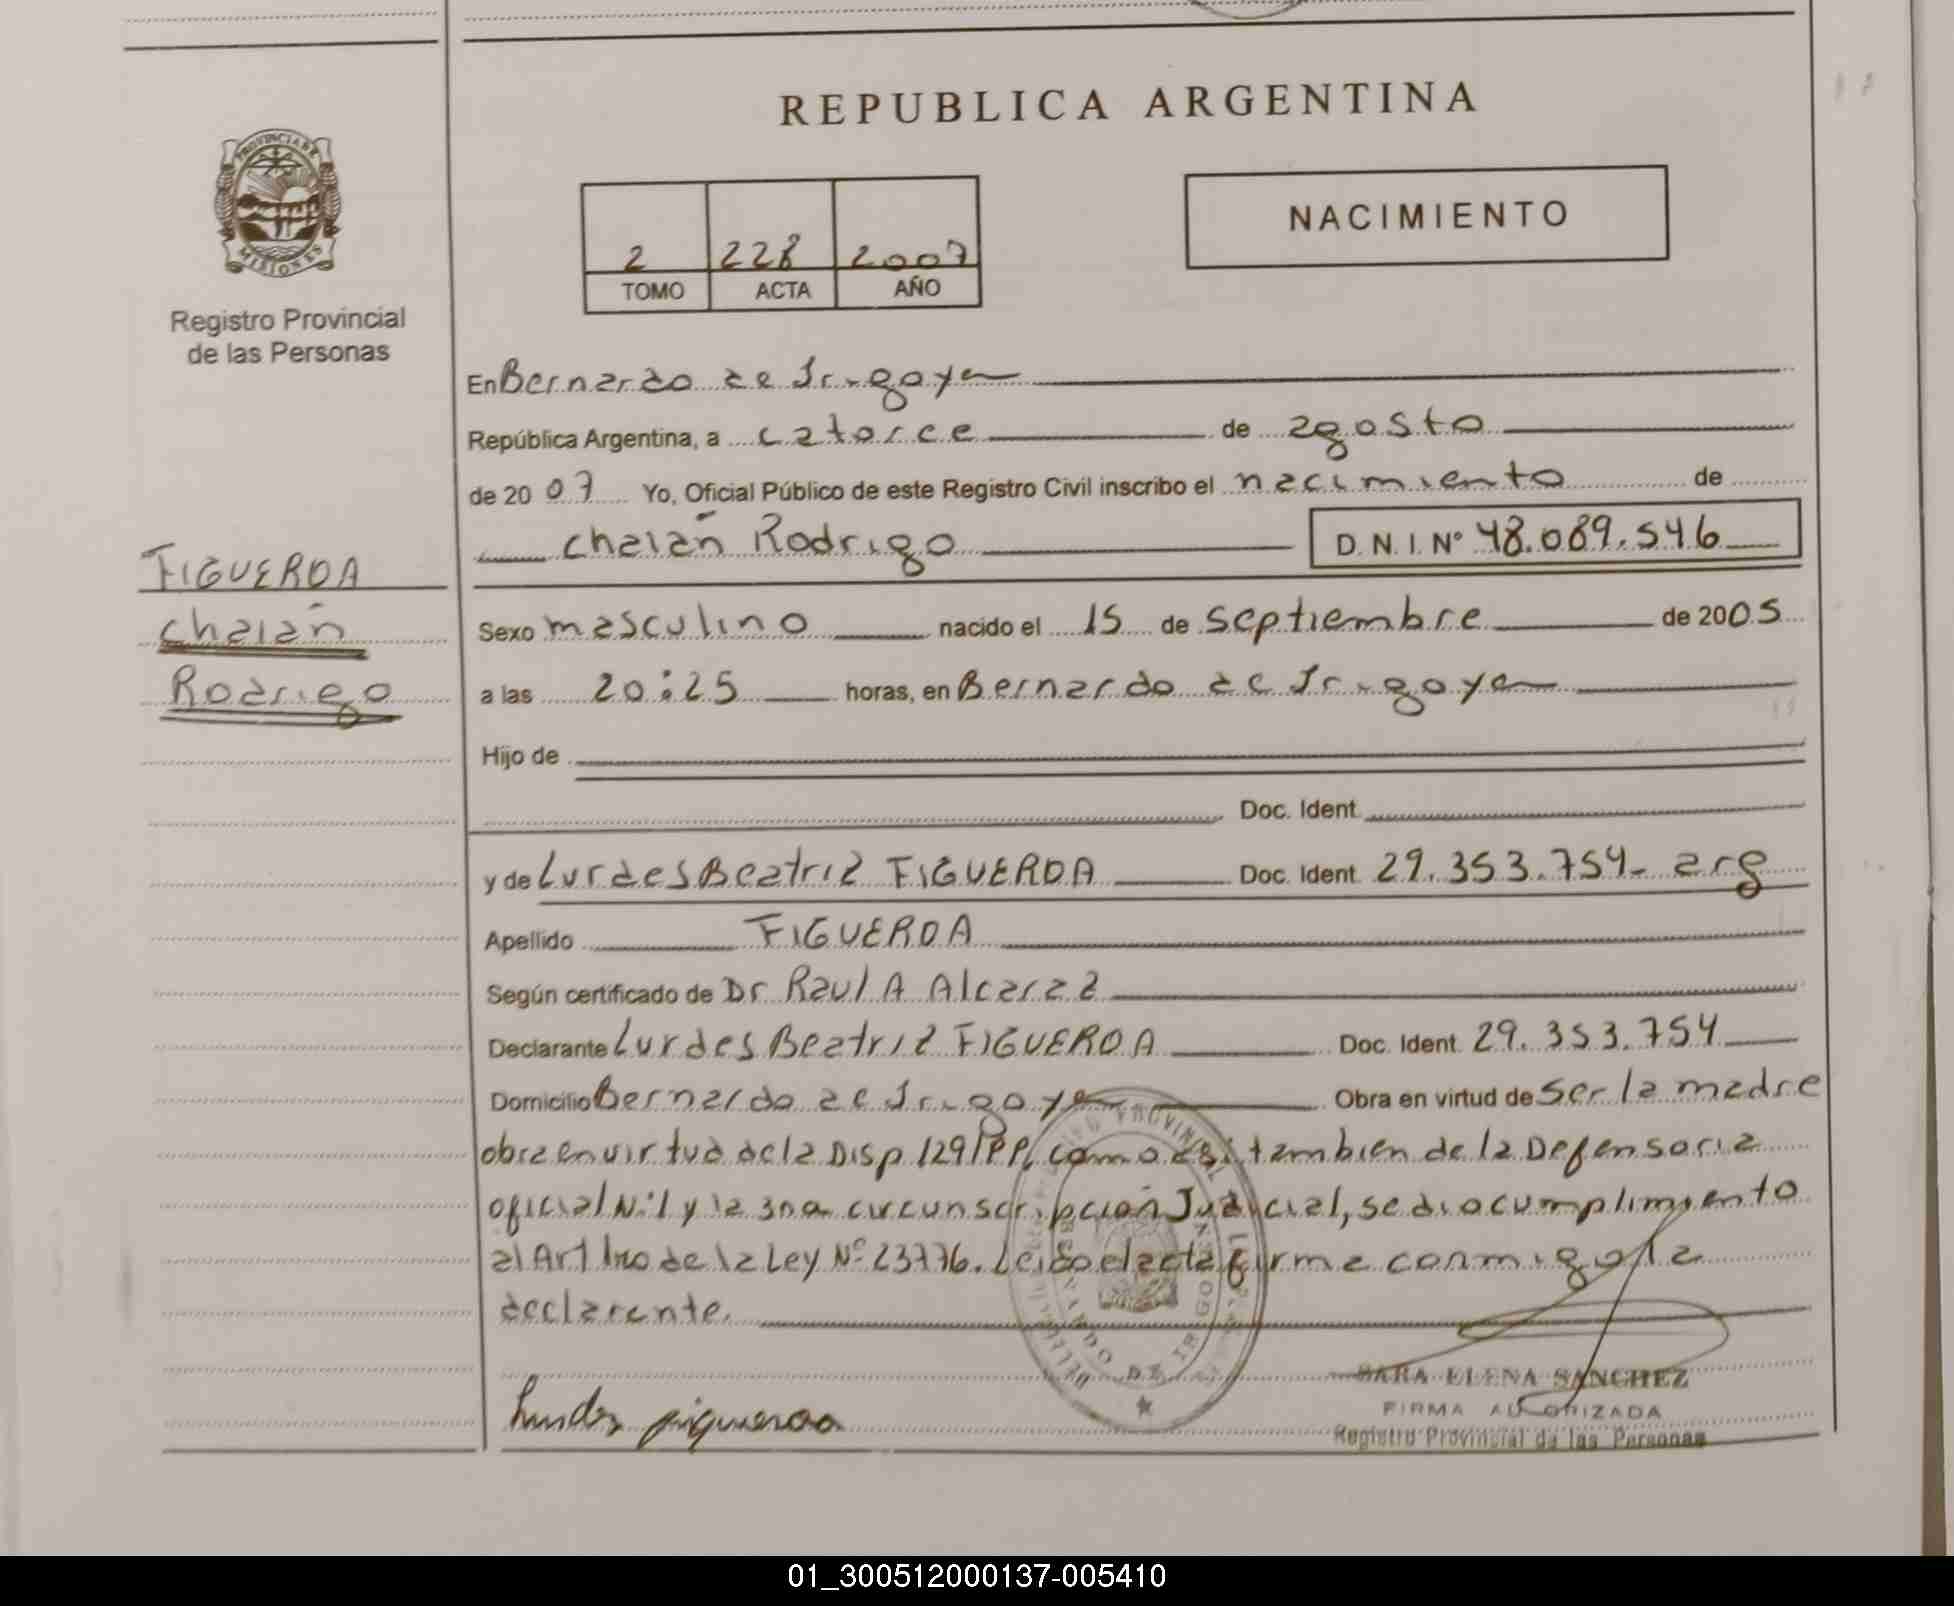 REPUBLICA ARGENTINA
PROVINCIA DE MISIONES
Registro Provincial
de las Personas
2 228 2007
TOMO ACTA AÑO
NACIMIENTO
En Bernardo de Irigoyen
República Argentina, a catorce de agosto
de 2007 Yo, Oficial Público de este Registro Civil inscribo el nacimiento de
Chaián Rodrigo D.N.I. Nº 48.089.546
FIGUEROA
Chaián
Rodrigo
Sexo masculino nacido el 15 de septiembre de 2005
a las 20:25 horas, en Bernardo de Irigoyen
Hijo de
Doc. Ident.
y de Lurdes Beatriz FIGUEROA Doc. Ident. 29.353.754- arg
Apellido FIGUEROA
Según certificado de Dr Raul A Alcaraz
Declarante Lurdes Beatriz FIGUEROA Doc. Ident. 29.353.754
Domicilio Bernardo de Irigoyen Obra en virtud de ser la madre
obra en virtud de la Disp 129/PP, como asi tambien de la Defensoria
oficial Nº 1 y la 3na circunscripción Judicial, se dio cumplimiento
al Art 1ro de la Ley Nº 23776. Leido el acta firma conmigo la
declarante.
Lurdes figueroa
SARA ELENA SANCHEZ
FIRMA AUTORIZADA
Registro Provincial de las Personas
BERNARDO DE IRIGOYEN
01_300512000137-005410